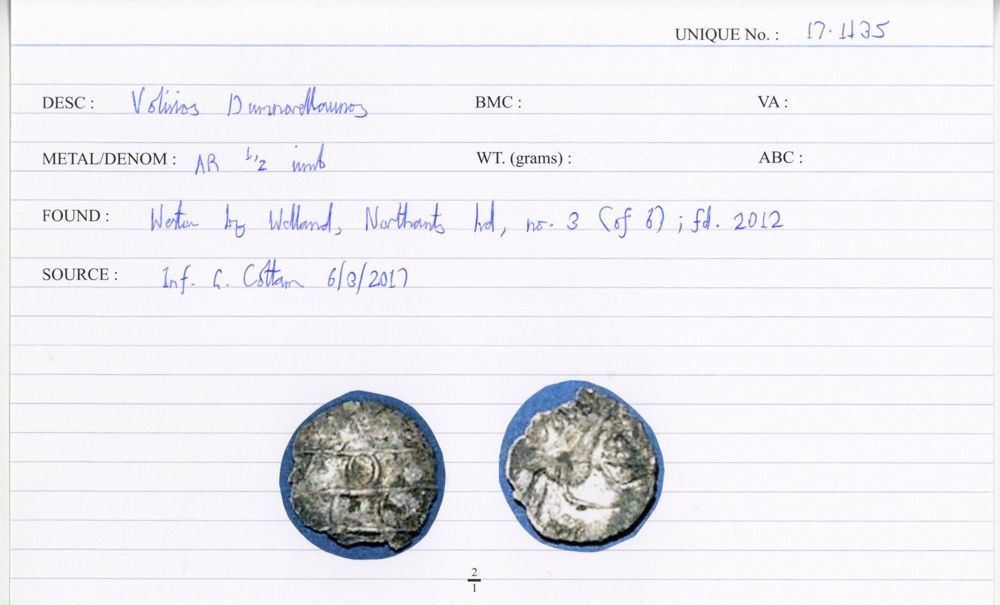 UNIQUE No. : 17.1135
DESC : Volisios Dumnovellaunos BMC : VA :
METAL/DENOM : AR 1/2 unit WT. (grams) : ABC :
FOUND : Weston by Welland, Northants hd, no. 3 (of 6) ; fd. 2012
SOURCE : Inf. G. Cottam 6/3/2017
2
1